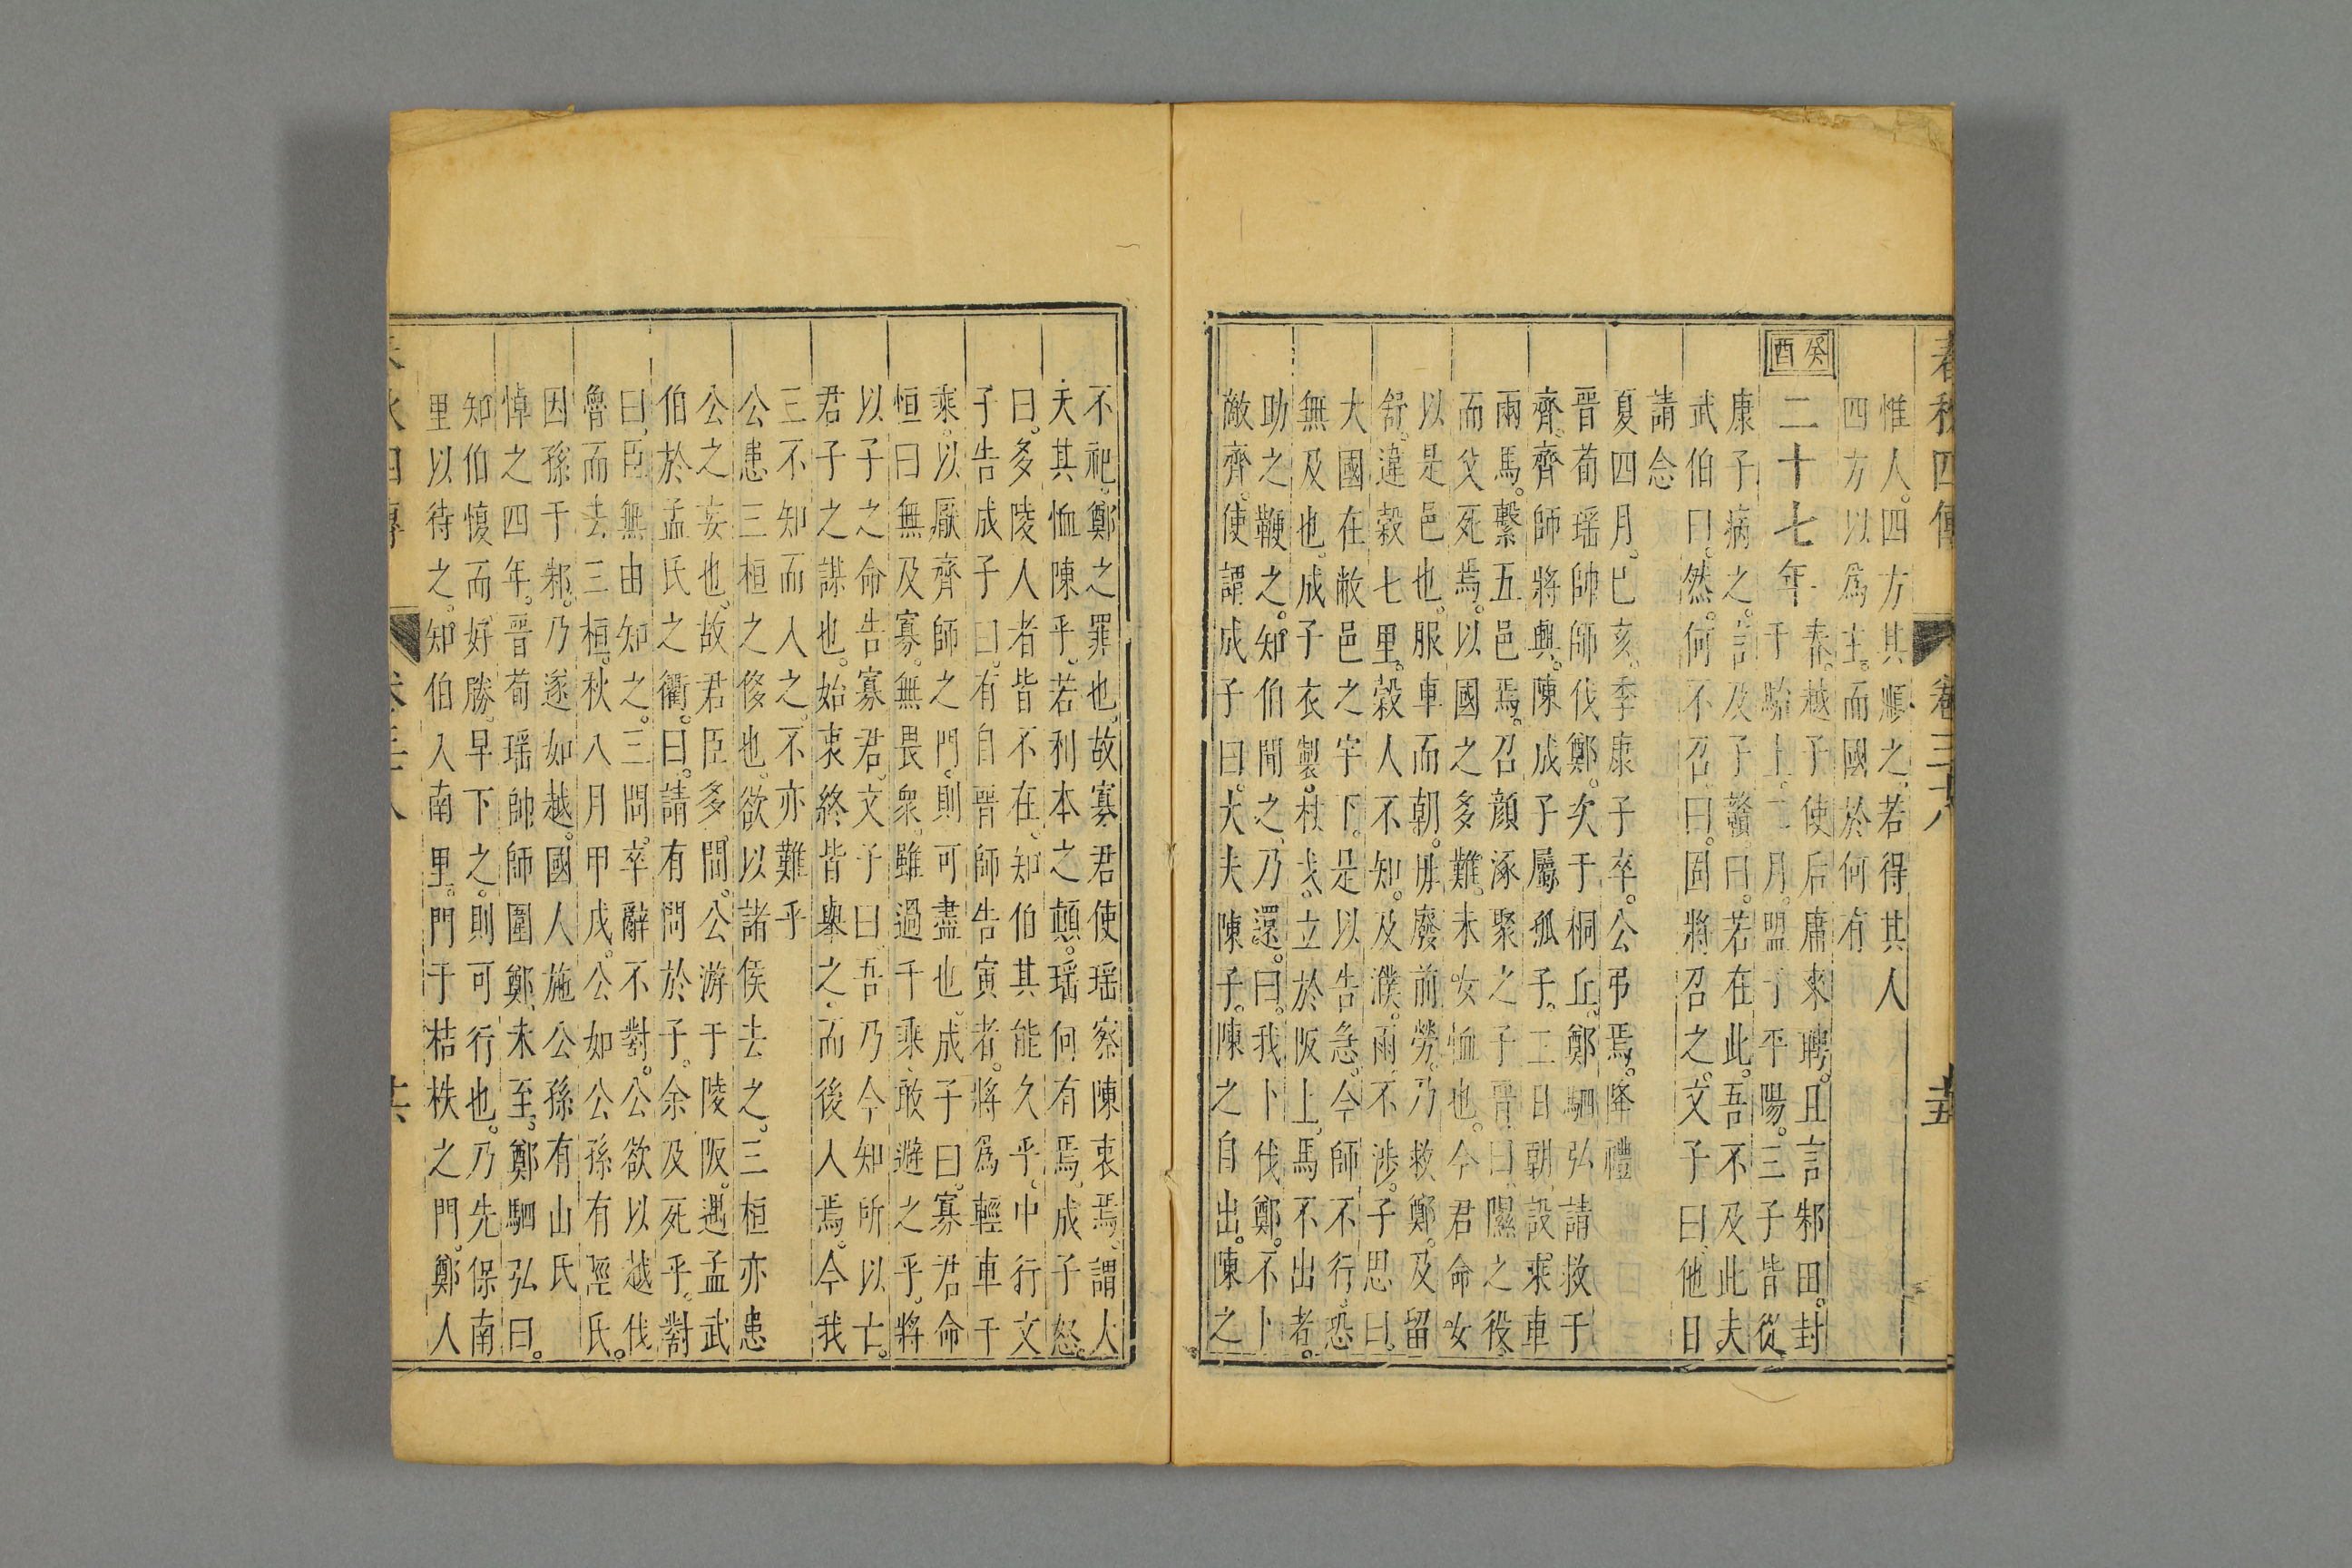 春秋四傳 卷三十八 十五
惟人。四方其順之。若得其人
四方以爲主。而國於何有
癸酉
二十七年
春。越子使后庸來聘。且言邾田。封
于駘上。二月。盟于平陽。三子皆從。
康子病之。言及子贛。曰。若在此。吾不及此夫
武伯曰。然。何不召。曰。固將召之。文子曰。他日
請念
夏四月。己亥。季康子卒。公弔焉。降禮
晉荀瑤帥師伐鄭。次于桐丘。鄭駟弘請救于
齊。齊師將興。陳成子屬孤子。三日朝。設乘車
兩馬。繫五邑焉。召顏涿聚之子晉。曰。隰之役。
而父死焉。以國之多難。未女恤也。今君命女
以是邑也。服車而朝。毋廢前勞。乃救鄭。及留
舒。違穀七里。穀人不知。及濮。雨。不涉。子思曰。
大國在敝邑之宇下。是以告急。今師不行。恐
無及也。成子衣製。杖戈。立於阪上。馬不出者。
助之鞭之。知伯聞之。乃還。曰。我卜伐鄭。不卜
敵齊。使謂成子曰。大夫陳子。陳之自出。陳之
不祀。鄭之罪也。故寡君使瑤察陳衷焉。謂大
夫其恤陳乎。若利本之顛。瑤何有焉。成子怒。
曰。多陵人者皆不在。知伯其能久乎。中行文
子告成子曰。有自晉師告寅者。將爲輕車千
乘。以厭齊師之門。則可盡也。成子曰。寡君命
恒曰。無及寡。無畏衆。雖過千乘。敢避之乎。將
以子之命告寡君。文子曰。吾乃今知所以亡。
君子之謀也。始衷終皆舉之。而後入焉。今我
三不知而入之。不亦難乎
公患三桓之侈也。欲以諸侯去之。三桓亦患
公之妄也。故君臣多間。公游于陵阪。遇孟武
伯於孟氏之衢。曰。請有問於子。余及死乎。對
曰。臣無由知之。三問。卒辭不對。公欲以越伐
魯而去三桓。秋八月甲戌。公如公孫有陘氏。
因孫于邾。乃遂如越。國人施公孫有山氏
悼之四年。晉荀瑤帥師圍鄭。未至。鄭駟弘曰。
知伯愎而好勝。早下之。則可行也。乃先保南
里以待之。知伯入南里。門于桔柣之門。鄭人